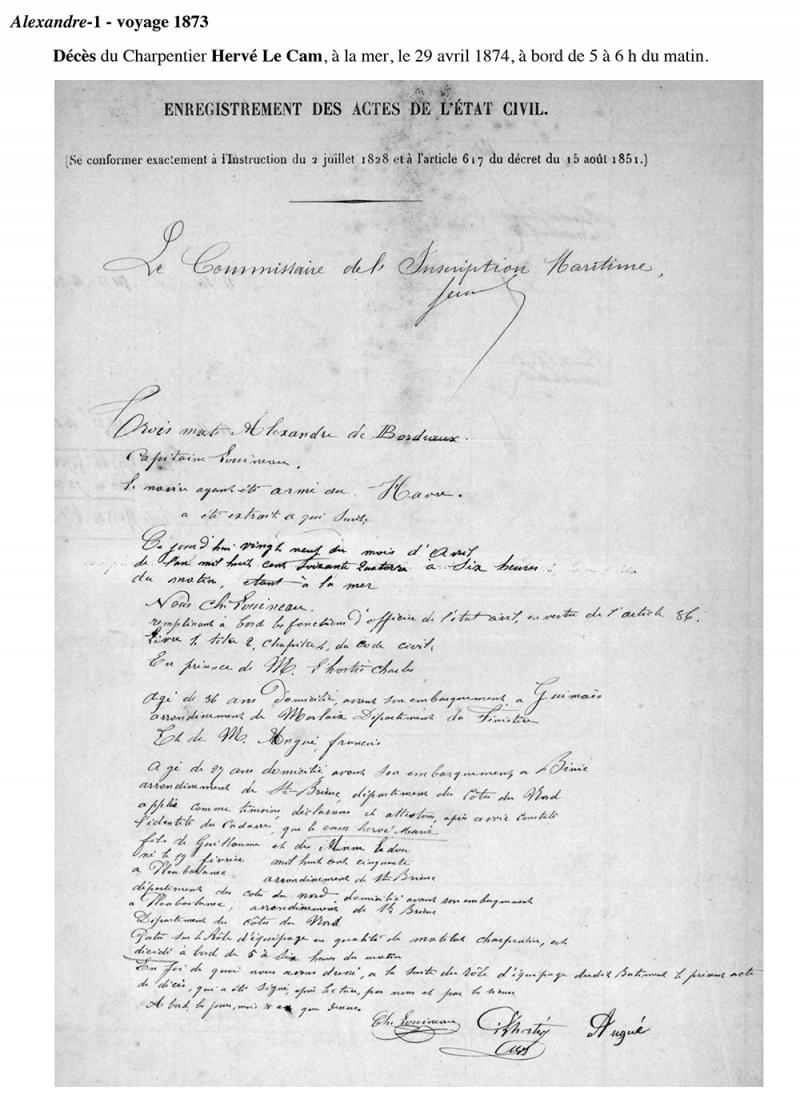 Alexandre-1 - voyage 1873
Décès du Charpentier Hervé Le Cam, à la mer, le 29 avril 1874, à bord de 5 à 6 h du matin.
ENREGISTREMENT DES ACTES DE L'ÉTAT CIVIL.
(Se conformer exactement à l'Instruction du 2 juillet 1828 et à l'article 617 du décret du 15 août 1851.)
Le Commissaire de l'Inscription Maritime,
Trois mats Alexandre de Bordeaux.
Capitaine Louineau.
le navire ayant été armé au Havre.
a été extrait ce qui suit,
Ce jourd'hui vingt neuf du mois d'Avril
de l'an mil huit cent soixante quatorze à six heures
du matin, étant à la mer
Nous Ch. Louineau.
remplissant à bord les fonctions d'officier de l'état civil, en vertu de l'article 86.
Livre 1, titre 2, chapitre 4, du code civil,
En présence de M. Charles
agé de 36 ans domicilié, avant son embarquement, a
arrondissement de Morlaix Département du Finistère
Et de M. Angué, françois
agé de 27 ans domicilié, avant son embarquement a Binic
arrondissement de St Brieuc, département des Côtes du Nord
appelés comme témoins, déclarons et attestons, après avoir constaté
l'identité du cadavre, que le cam hervé Marie
fils de Guillaume et de Anne
né le 19 février mil huit cent cinquante
a arrondissement de St Brieuc
département des cotes du nord domicilié avant son embarquement
a arrondissement de St Brieuc
Département des côtes du Nord
Porté sur le Rôle d'équipage en qualité de matelot charpentier, est
décédé à bord de 5 à six heures du matin
En foi de quoi nous avons dressé, a la suite du rôle d'équipage dudit Batiment le présent acte
de décès, qui a été signé, après lecture, par nous et par les témoins
A bord, les jour, mois & an que dessus
Ch. Louineau Angué